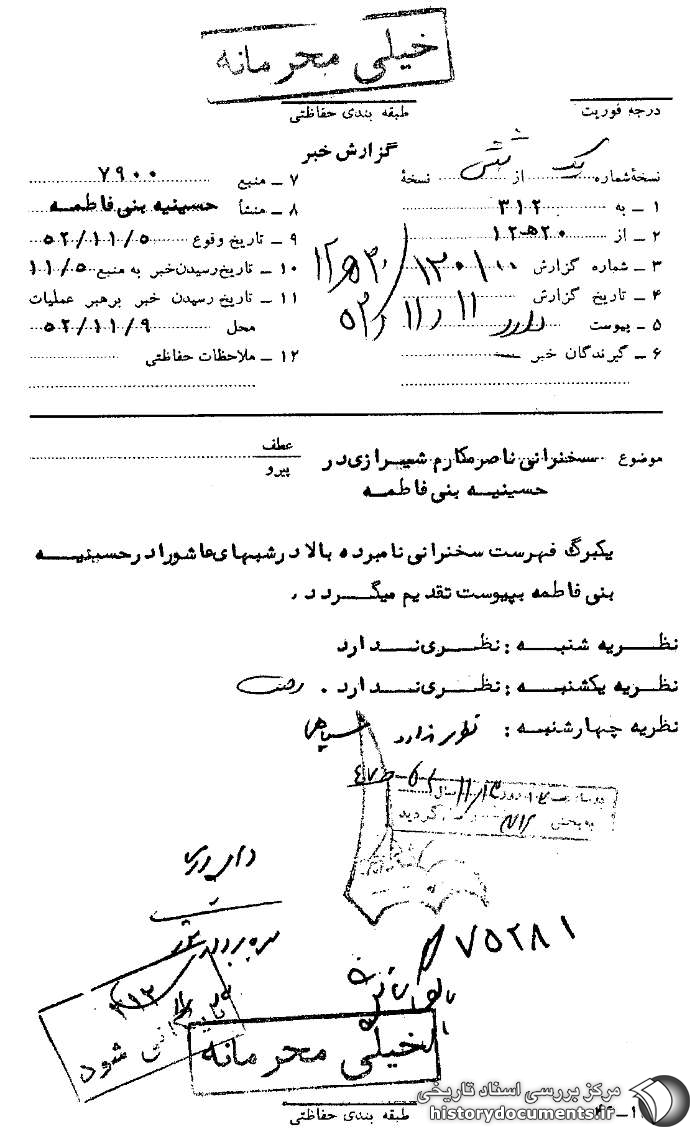 خیلی محرمانه
درجه فوریت
طبقه بندی حفاظتی
گزارش خبر
نسخهٔ شماره یک از شش نسخهٔ
۱ ـ به ۳۱۲
۲ ـ از ۲۰هـ۱۲
۳ ـ شماره گزارش
۴ ـ تاریخ گزارش
۵ ـ پیوست دارد
۶ ـ گیرندگان خبر
۷ ـ منبع ۷۹۰۰
۸ ـ منشأ حسینیه بنی فاطمه
۹ ـ تاریخ وقوع ۵۲/۱۱/۵
۱۰ ـ تاریخ رسیدن خبر به منبع ۱۱/۵
۱۱ ـ تاریخ رسیدن خبر برهبر عملیات
محل ۵۲/۱۱/۹
۱۲ ـ ملاحظات حفاظتی
موضوع سخنرانی ناصر مکارم شیرازی در
حسینیه بنی فاطمه
عطف
پیرو
یکبرگ فهرست سخنرانی نامبرده بالا در شبهای عاشورا در حسینیه
بنی فاطمه بپیوست تقدیم میگردد .
نظریه شنبه : نظری ندارد
نظریه یکشنبه : نظری ندارد .
نظریه چهارشنبه : نظری ندارد
به بخش ۳۱۲ گردید
۷۵۲۸۱
بایگانی شود
خیلی محرمانه
طبقه بندی حفاظتی
مرکز بررسی اسناد تاریخی
historydocuments.ir